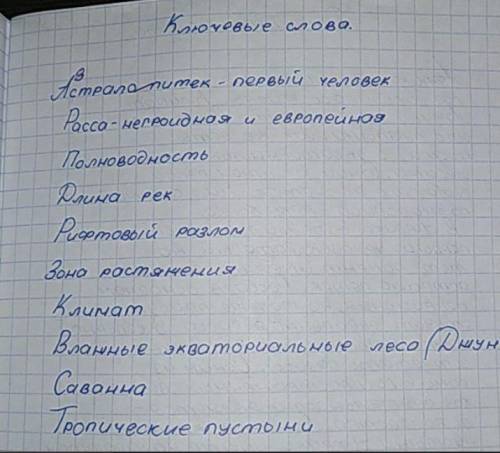 Ключевые слова.
Австралопитек - первый человек
Расса - негроидная и европейная
Полноводность
Длина рек
Рифтовый разлом
Зона растяжения
Климат
Влажные экваториальные леса (Джун
Саванна
Тропические пустыни